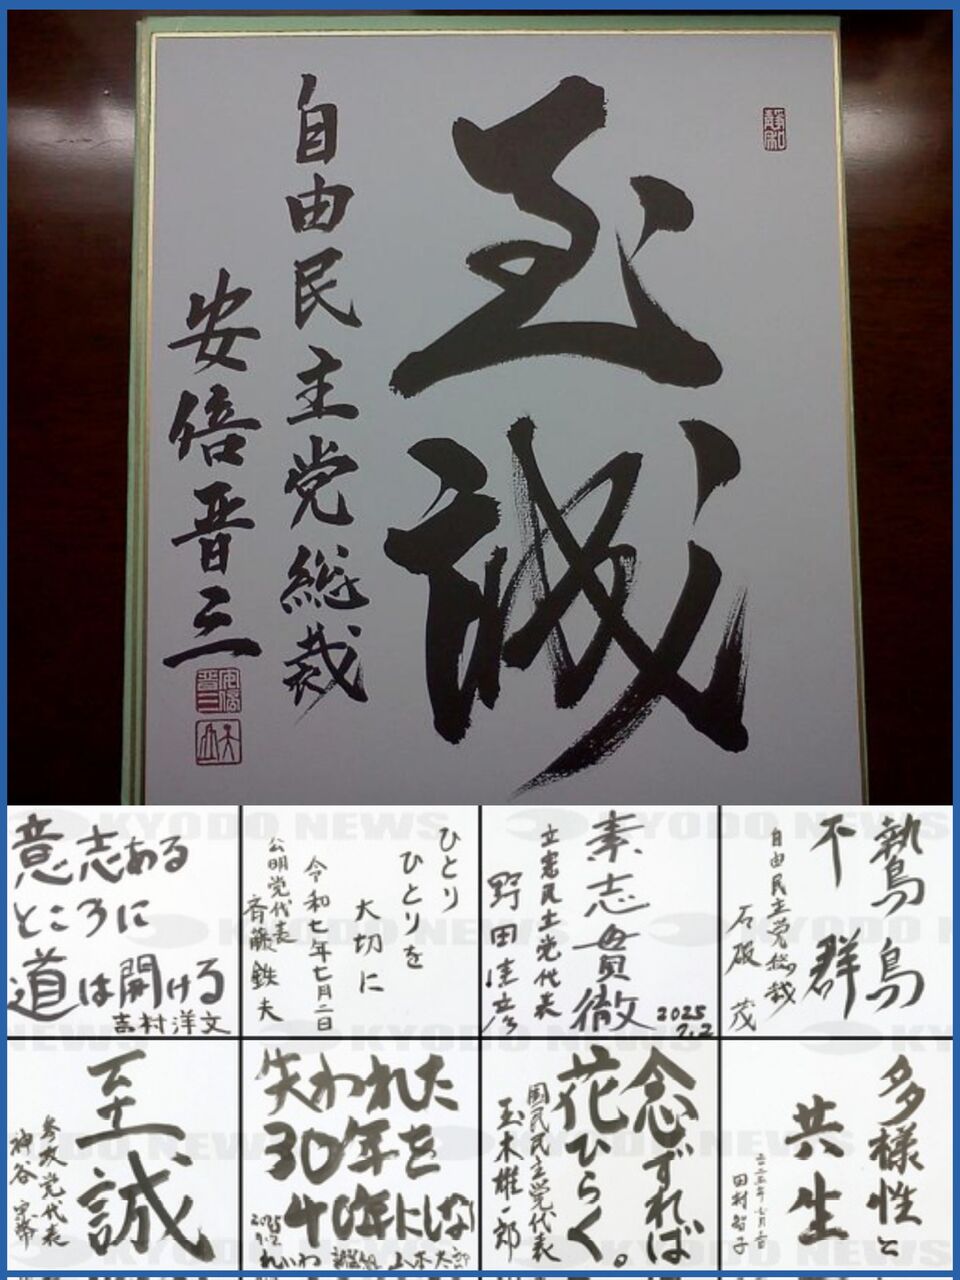 静和
至誠
自由民主党総裁
安倍晋三
安倍晋三
意志ある
ところに
道は開ける
吉村洋文
ひとり
ひとりを
大切に
令和七年七月二日
公明党代表
斉藤鉄夫
素志貫徹
立憲民主党代表
野田佳彦
2025
7.2
鷙鳥
不群
自由民主党総裁
石破茂
至誠
参政党代表
神谷宗幣
失われた
30年を
40年にしない
2025
7.2
れいわ新選組 山本太郎
念ずれば
花ひらく。
国民民主党代表
玉木雄一郎
多様性と
共生
二〇二五年七月二日
田村智子
KYODO NEWS
KYODO NEWS
KYODO NEWS
KYODO NEWS